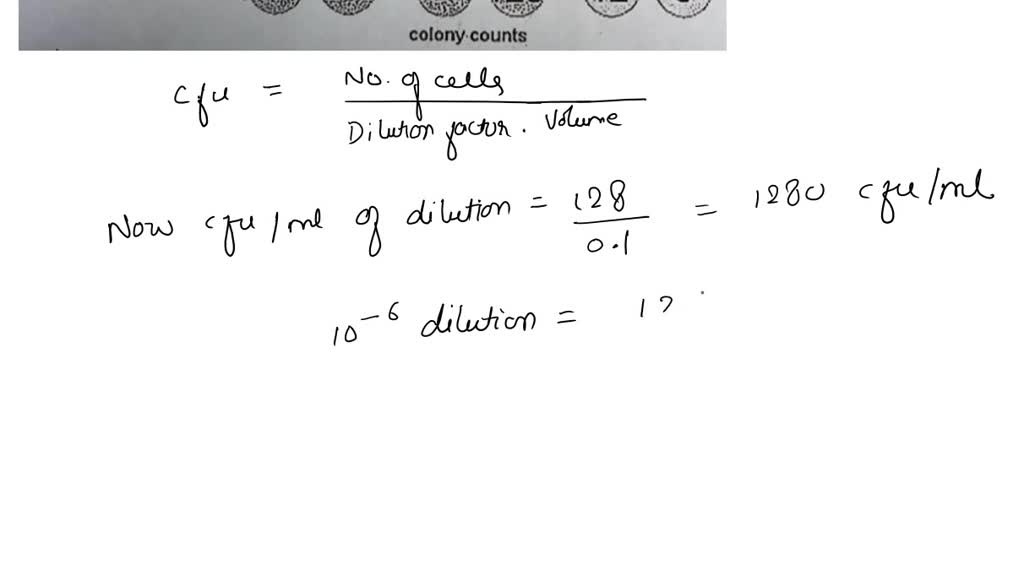 colony counts
cfu = No. of cells / Dilution factor . Volume
Now cfu/ml of dilution = 128 / 0.1 = 1280 cfu/ml
10⁻⁶ dilution =